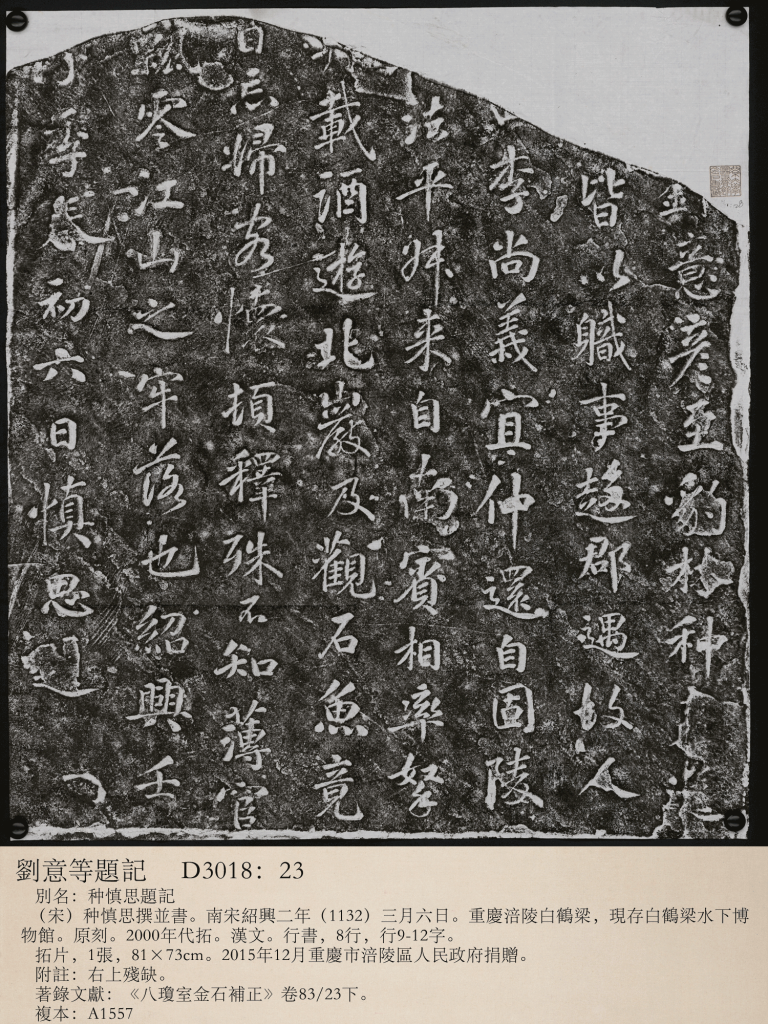 劉意彥至豹林种
皆以職事趍郡遇故人
李尚義宜仲還自固陵
法平姝来自南賓相率拏
載酒遊北巖及觀石魚竟
日忘歸客懷頓釋殊不知薄宦
飄零江山之牢落也紹興壬
子季春初六日慎思題
劉意等題記 D3018：23
別名：种慎思題記
（宋）种慎思撰並書。南宋紹興二年（1132）三月六日。重慶涪陵白鶴梁，現存白鶴梁水下博
物館。原刻。2000年代拓。漢文。行書，8行，行9-12字。
拓片，1張，81×73cm。2015年12月重慶市涪陵區人民政府捐贈。
附註：右上殘缺。
著錄文獻：《八瓊室金石補正》卷83/23下。
複本：A1557